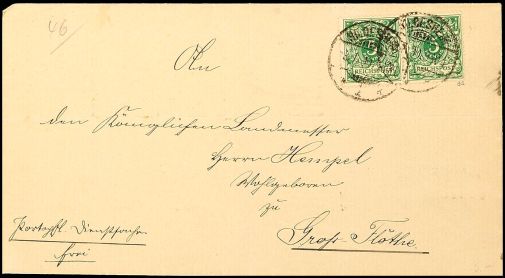 46
HILDESHEIM HILDESHEIM
5 5
REICHSPOST REICHSPOST
An
den Königlichen Landmesser
Herrn Hempel
Wohlgeboren
zu
Groß Flöthe.
Portopfl. Dienstsache
frei